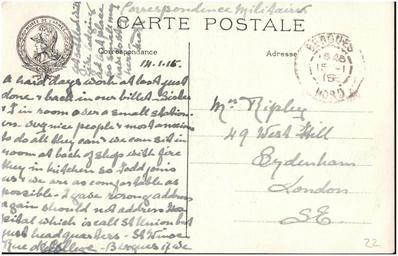 Correspondence Militaire
CARTE POSTALE
Correspondance
Adresse
14.1.15.
A hard days work at last just
done & back in our billet
& I in room over a small station-
ers. Very nice people & most anxious
to do all they can & we can sit in
room at back of shop with fire
they in kitchen so Todd joins
us & we are as comfortable as
possible. I gave wrong address
again should not address Hos
pital which is call St Union but
just headquarters
Rue de College - Bergues if we
BERGUES
NORD
Mrs Ripley
49 West Hill
Sydenham
London
S.E.
22